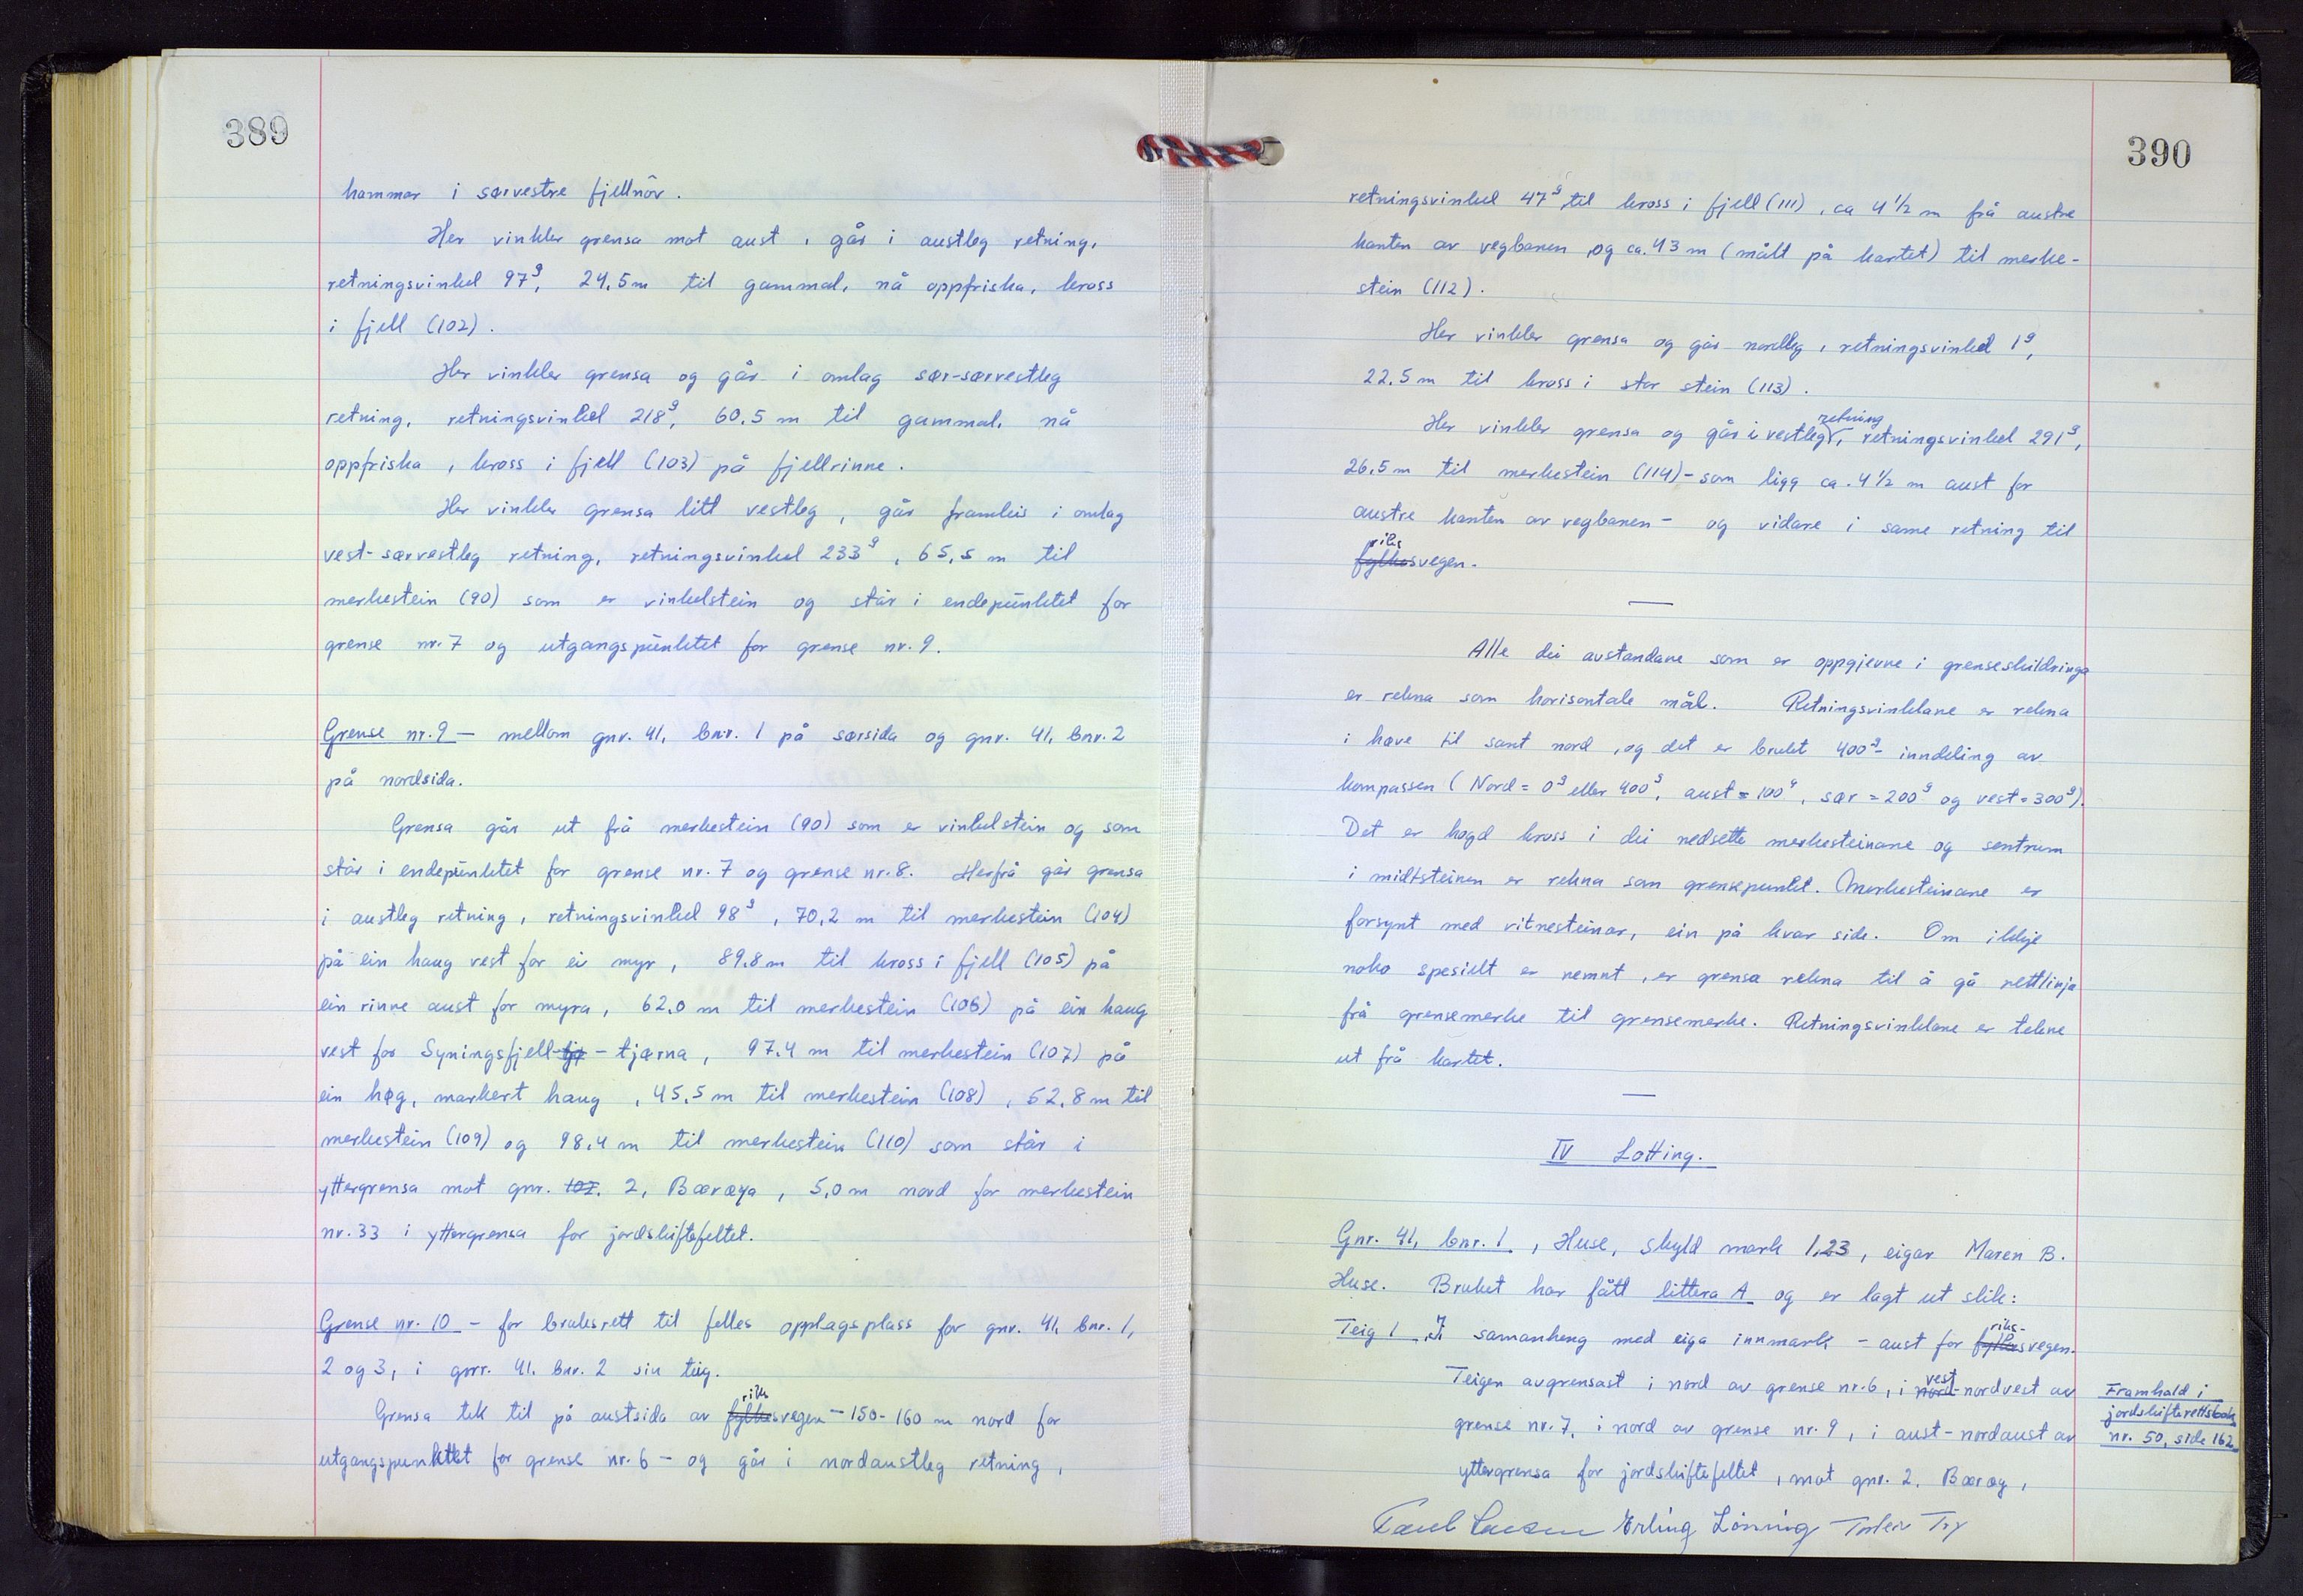 389
hammar i sørvestre fjellnôv.
Her vinkler grensa mot aust, går i austleg retning,
retningsvinkel 97g, 24,5m til gammal, nå oppfriska, kross
i fjell (102).
Her vinkler grensa og går i omlag sør-sørvestleg
retning, retningsvinkel 218g, 60,5 m til gammal, nå
oppfriska, kross i fjell (103) på fjellrinne.
Her vinkler grensa litt vestleg, går framleis i omlag
vest-sørvestleg retning, retningsvinkel 233g, 65,5 m til
merkestein (90) som er vinkelstein og står i endepunktet for
grense nr. 7 og utgangspunktet for grense nr. 9.
Grense nr. 9 — mellom gnr. 41, bnr. 1 på sørsida og gnr. 41, bnr. 2
på nordsida.
Grensa går ut frå merkestein (90) som er vinkelstein og som
står i endepunktet for grense nr. 7 og grense nr. 8. Herfrå går grensa
i austleg retning, retningsvinkel 98g, 70,2 m til merkestein (104)
på ein haug vest for ei myr, 89,8m til kross i fjell (105) på
ein rinne aust for myra, 62,0 m til merkestein (106) på ein haug
vest for Syningsfjell-tj-tjørna, 97,4 m til merkestein (107) på
ein høg, markert haug, 45,5m til merkestein (108), 52,8m til
merkestein (109) og 98,4 m til merkestein (110) som står i
yttergrensa mot gnr. 102. 2, Bærøya, 5,0m nord for merkestein
nr. 33 i yttergrensa for jordskiftefeltet.
Grense nr. 10 - for bruksrett til felles opplagsplass for gnr. 41, bnr. 1,
2 og 3, i gnr. 41, bnr. 2 sin teig.
riks
Grensa tek til på austsida av fylkesvegen - 150-160 m nord for
utgangspunktet for grense nr. 6 - og går i nordaustleg retning,
390
retningsvinkel 47g, til kross i fjell (111), ca 4 1/2 m frå austre
kanten av vegbanen, og ca. 43 m (målt på kartet) til merke-
stein (112).
Her vinkler grensa og går nordleg, retningsvinkel 1g,
22,5m til kross i stor stein (113).
retning
Her vinkler grensa og går i vestleg, retningsvinkel 291g,
26,5m til merkestein (114) - som ligg ca. 4 1/2 m aust for
austre kanten av vegbanen - og vidare i same retning til
riks
fylkesvegen.
Alle dei avstandane som er oppgjevne i grenseskildringa
er rekna som horisontale mål. Retningsvinklane er rekna
i høve til sant nord, og det er brukt 400g- inndeling av
kompassen (Nord = 0g eller 400g, aust = 100g, sør = 200g og vest = 300g).
Det er hogd kross i dei nedsette merkesteinane og sentrum
i midtsteinen er rekna som grensepunkt. Merkesteinane er
forsynt med vitnesteinar, ein på kvar side. Om ikkje
noko spesielt er nemnt, er grensa rekna til å gå rettlinja
frå grensemerke til grensemerke. Retningsvinklane er tekne
ut frå kartet.
IV Lotting.
Gnr. 41, bnr. 1, Huse, skyld mark 1,23, eigar Maren B.
Huse. Bruket har fått littera A og er lagt ut slik:
riks-
Teig 1. I samanheng med eiga innmark - aust for fylkesvegen.
vest
Teigen avgrensast i nord av grense nr. 6, i nord-nordvest av
grense nr. 7, i nord av grense nr. 9, i aust-nordaust av
yttergrensa for jordskiftefeltet, mot gnr. 2, Bærøy,
Framhald i
jordskifterettsbok
nr. 50, side 162
Erling Löning